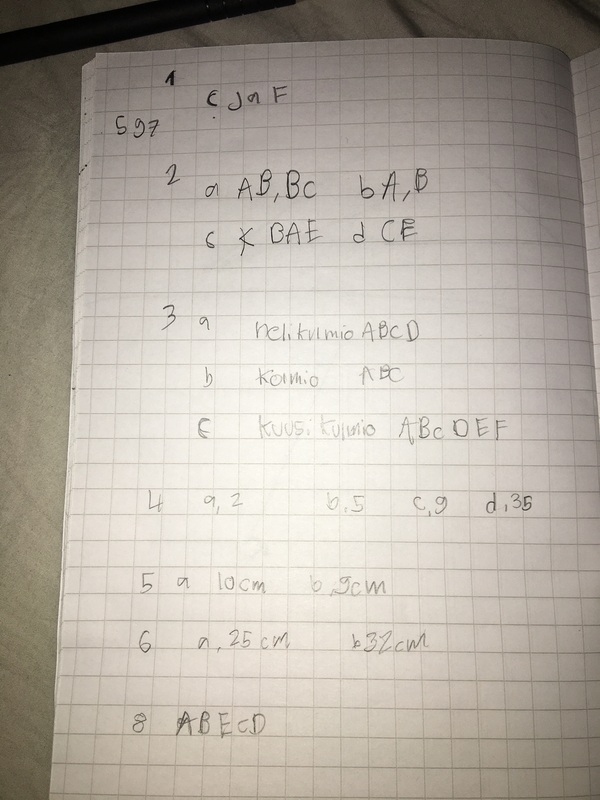 1
C ja F
S 97
2 a AB, BC b A, B
c ∢ BAE d CE
3 a nelikulmio ABCD
b kolmio ABC
c kuusikulmio ABCDEF
4 a, 2 b, 5 c, 9 d, 35
5 a 10cm b, 9cm
6 a, 25 cm b 32cm
8 ABECD